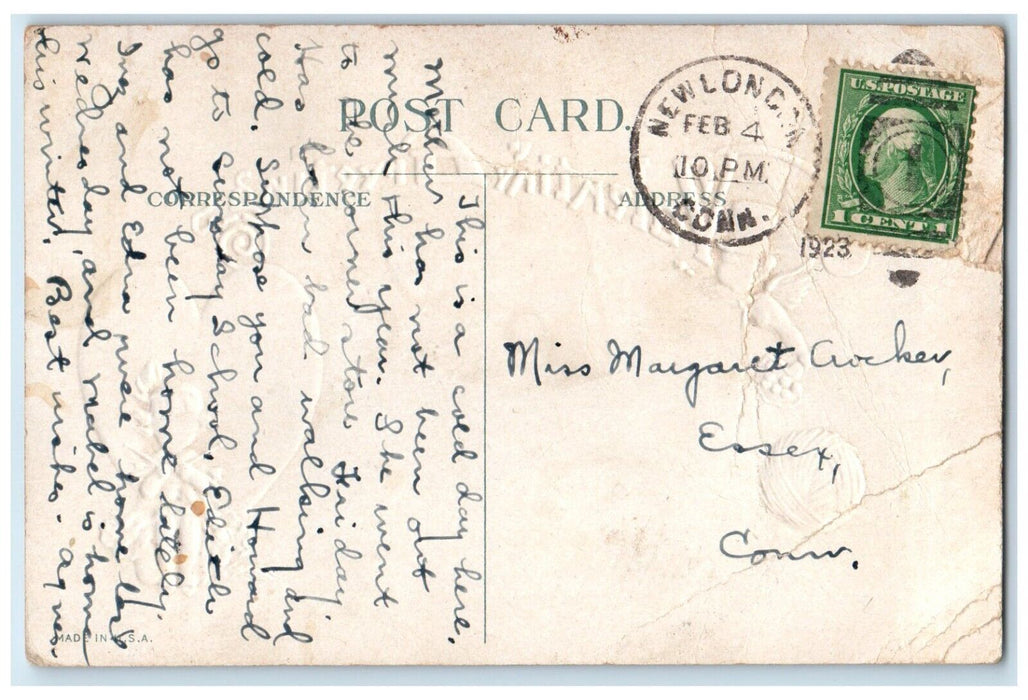 POST CARD.
CORRESPONDENCE
ADDRESS
NEW LONDON
FEB 4
10 P.M.
CONN.
1923
U.S. POSTAGE
1 CENT 1
Miss Margaret Crocker,
Essex,
Conn.
This is a cold day here.
Mother has not been out
much this year. She went
to the corner store Friday,
Has been bad walking and
cold. Suppose you and Howard
go to Sunday School. Edith
has not been home lately.
Ina and Edna were home
Wednesday, and Mabel is home
this winter. Best wishes - Agnes.
MADE IN U.S.A.